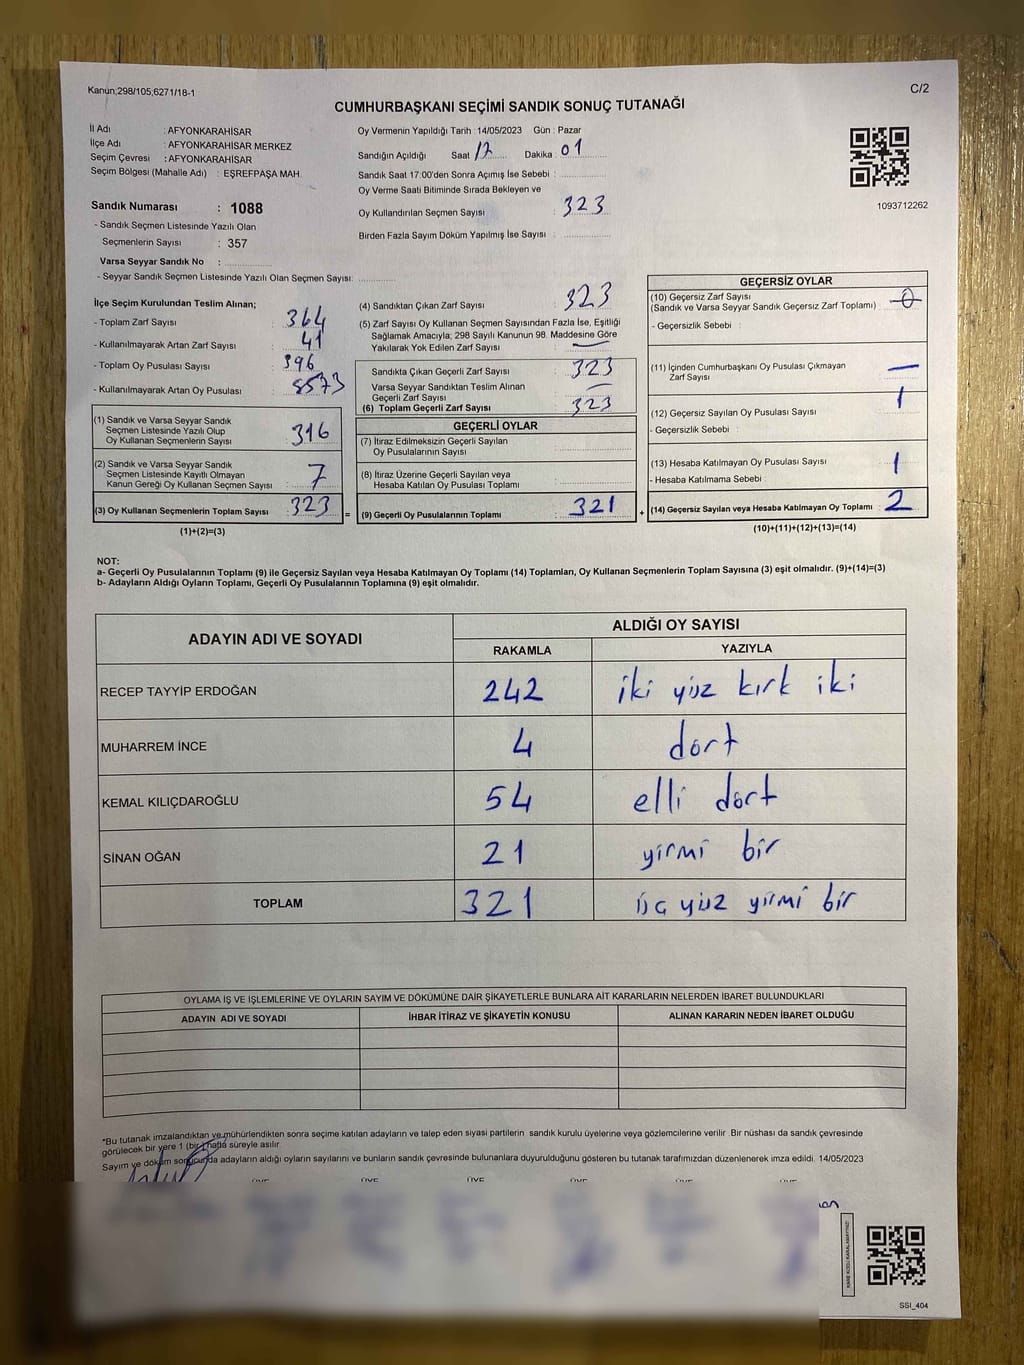 Kanun;298/105;6271/18-1
C/2
CUMHURBAŞKANI SEÇİMİ SANDIK SONUÇ TUTANAĞI
İl Adı : AFYONKARAHİSAR
İlçe Adı : AFYONKARAHİSAR MERKEZ
Seçim Çevresi : AFYONKARAHİSAR
Seçim Bölgesi (Mahalle Adı) : EŞREFPAŞA MAH.
Sandık Numarası : 1088
- Sandık Seçmen Listesinde Yazılı Olan
Seçmenlerin Sayısı : 357
Varsa Seyyar Sandık No :
- Seyyar Sandık Seçmen Listesinde Yazılı Olan Seçmen Sayısı:
Oy Vermenin Yapıldığı Tarih : 14/05/2023 Gün : Pazar
Sandığın Açıldığı Saat 17 Dakika : 01
Sandık Saat 17:00'den Sonra Açımış İse Sebebi :
Oy Verme Saati Bitiminde Sırada Bekleyen ve
Oy Kullandırılan Seçmen Sayısı : 323
Birden Fazla Sayım Döküm Yapılmış İse Sayısı :
1093712262
İlçe Seçim Kurulundan Teslim Alınan;
- Toplam Zarf Sayısı : 364
- Kullanılmayarak Artan Zarf Sayısı : 41
- Toplam Oy Pusulası Sayısı : 396
- Kullanılmayarak Artan Oy Pusulası :
(1) Sandık ve Varsa Seyyar Sandık
Seçmen Listesinde Yazılı Olup
Oy Kullanan Seçmenlerin Sayısı : 316
(2) Sandık ve Varsa Seyyar Sandık
Seçmen Listesinde Kayıtlı Olmayan
Kanun Gereği Oy Kullanan Seçmen Sayısı : 7
(3) Oy Kullanan Seçmenlerin Toplam Sayısı : 323
(1)+(2)=(3)
(4) Sandıktan Çıkan Zarf Sayısı : 323
(5) Zarf Sayısı Oy Kullanan Seçmen Sayısından Fazla İse, Eşitliği
Sağlamak Amacıyla; 298 Sayılı Kanunun 98. Maddesine Göre
Yakılarak Yok Edilen Zarf Sayısı : —
Sandıkta Çıkan Geçerli Zarf Sayısı : 323
Varsa Seyyar Sandıktan Teslim Alınan
Geçerli Zarf Sayısı : —
(6) Toplam Geçerli Zarf Sayısı : 323
GEÇERLİ OYLAR
(7) İtiraz Edilmeksizin Geçerli Sayılan
Oy Pusulalarının Sayısı :
(8) İtiraz Üzerine Geçerli Sayılan veya
Hesaba Katılan Oy Pusulası Toplamı :
= (9) Geçerli Oy Pusulalarının Toplamı : 321
GEÇERSİZ OYLAR
(10) Geçersiz Zarf Sayısı
(Sandık ve Varsa Seyyar Sandık Geçersiz Zarf Toplamı) : 0
- Geçersizlik Sebebi :
(11) İçinden Cumhurbaşkanı Oy Pusulası Çıkmayan
Zarf Sayısı : —
(12) Geçersiz Sayılan Oy Pusulası Sayısı : 1
- Geçersizlik Sebebi :
(13) Hesaba Katılmayan Oy Pusulası Sayısı : 1
- Hesaba Katılmama Sebebi :
+ (14) Geçersiz Sayılan veya Hesaba Katılmayan Oy Toplamı : 2
(10)+(11)+(12)+(13)=(14)
NOT:
a- Geçerli Oy Pusulalarının Toplamı (9) ile Geçersiz Sayılan veya Hesaba Katılmayan Oy Toplamı (14) Toplamları, Oy Kullanan Seçmenlerin Toplam Sayısına (3) eşit olmalıdır. (9)+(14)=(3)
b- Adayların Aldığı Oyların Toplamı, Geçerli Oy Pusulalarının Toplamına (9) eşit olmalıdır.
ADAYIN ADI VE SOYADI ALDIĞI OY SAYISI
RAKAMLA YAZIYLA
RECEP TAYYİP ERDOĞAN 242 iki yüz kırk iki
MUHARREM İNCE 4 dört
KEMAL KILIÇDAROĞLU 54 elli dört
SİNAN OĞAN 21 yirmi bir
TOPLAM 321 üç yüz yirmi bir
OYLAMA İŞ VE İŞLEMLERİNE VE OYLARIN SAYIM VE DÖKÜMÜNE DAİR ŞİKAYETLERLE BUNLARA AİT KARARLARIN NELERDEN İBARET BULUNDUKLARI
ADAYIN ADI VE SOYADI İHBAR İTİRAZ VE ŞİKAYETİN KONUSU ALINAN KARARIN NEDEN İBARET OLDUĞU
*Bu tutanak imzalandıktan ve mühürlendikten sonra seçime katılan adayların ve talep eden siyasi partilerin sandık kurulu üyelerine veya gözlemcilerine verilir. Bir nüshası da sandık çevresinde
görülecek bir yere 1 (bir) hafta süreyle asılır.
Sayım ve döküm sonucunda adayların aldığı oyların sayılarını ve bunların sandık çevresinde bulunanlara duyurulduğunu gösteren bu tutanak tarafımızdan düzenlenerek imza edildi. 14/05/2023
ÜYE ÜYE ÜYE ÜYE ÜYE ÜYE
KARE KODU KARALAMAYINIZ!
SSI_404